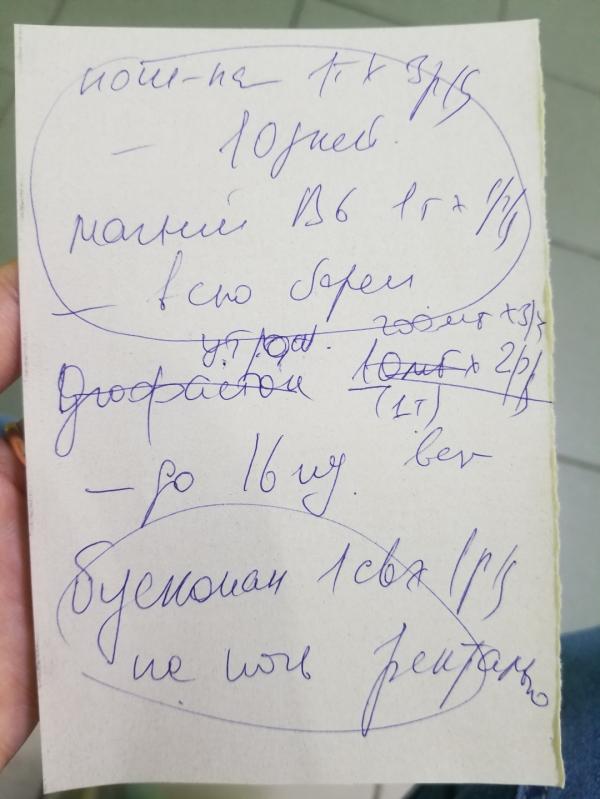 но-шпа 1т х 3р/д
— 10 дней.
магний В6 1т х 1р/д
— всю берем
утрож. 200мг х 3р/д
Дюфастон 10мг х 2р/д
(1т)
— до 16 нед. веч
бускопан 1св х 1р/д
на ночь ректально